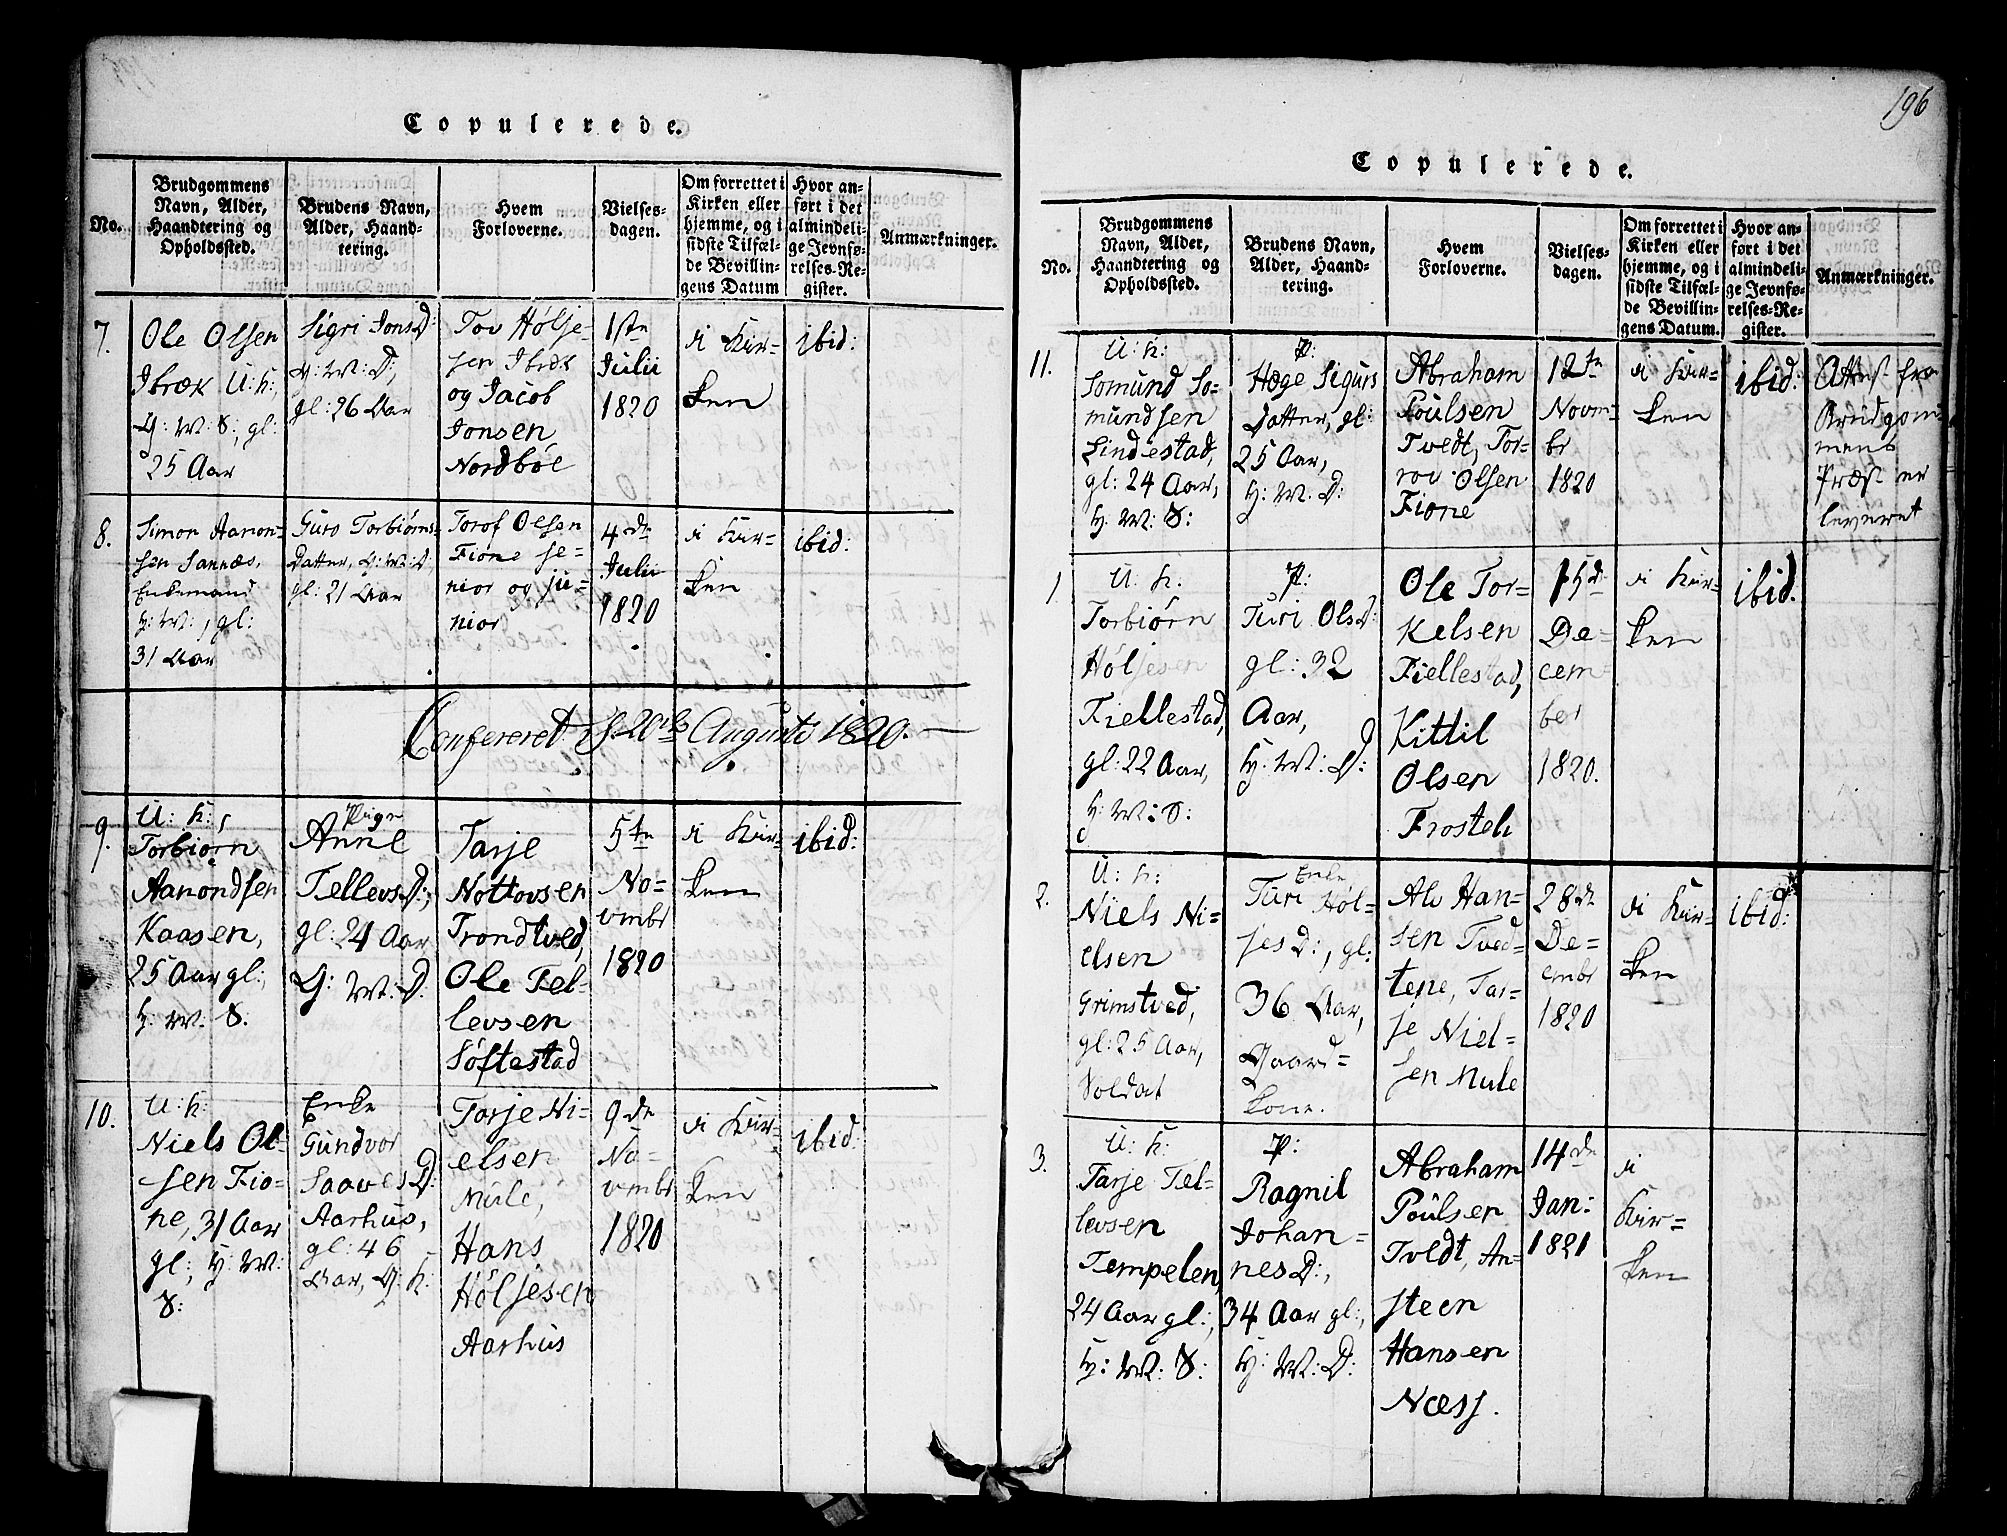 Copulerede.
No.
Brudgommens
Navn, Alder,
Haandtering og
Opholdssted.
Brudens Navn,
Alder, Haand-
tering.
Hvem
Forloverne.
Vielses-
dagen.
Om forrettet i
Kirken eller
hjemme, og i
sidste Tilfæl-
de Bevillin-
gens Datum
Hvor an-
ført i det
almindeli-
ge Jevnfø-
relses-Re-
gister.
Anmærkninger.
7.
Ole Olsen
Ibræk U: K:,
G: M: S:, gl:
25 Aar
Sigri JonsD:
G: M: D:,
gl: 26 Aar
Tov Høljе-
sen Ibræk
og Jacob
Jonsen
Nordbøe
1ste
Julii
1820
i Kir-
ken
ibid:
8.
Simon Aanon-
sen Sannæs,
Enkemand
H: M:, gl:
31 Aar
Guro Torbiørns-
Datter, G: M: D:
gl: 21 Aar
Torof Olsen
Fione se-
nior og ju-
nior
4de
Julii
1820
i Kir-
ken
ibid:
Confereret d 20de Augusti 1820.
9.
U: K:,
Torbiørn
Aanondsen
Kaasen,
25 Aar gl:,
H: M: S.
Pige
Anne
TellevsD:,
gl: 24 Aar
G: M: D.
Tarje
Nottovsen
Trondtved,
Ole Tel-
levsen
Søftestad
5te
No-
vmbr
1820
i Kir-
ken
ibid:
10.
U: K:
Niels Ol-
sen Fio-
ne, 31 Aar
gl:, H: M:
S:
Enke
Gundvor
SaavesD:
Aarhus,
gl: 46
Aar, G: K:
Tarje Ni-
elsen
Mule,
Hans
Høljesen
Aarhus
9de
No-
vmbr
1820
i Kir-
ken
ibid:
196
Copulerede.
No.
Brudgommens
Navn, Alder,
Haandtering og
Opholdssted.
Brudens Navn,
Alder, Haand-
tering.
Hvem
Forloverne.
Vielses-
dagen.
Om forrettet i
Kirken eller
hjemme, og i
sidste Tilfæl-
de Bevillin-
gens Datum.
Hvor an-
ført i det
almindeli-
ge Jevnfø-
relses-Re-
gister.
Anmærkninger.
11.
U: K:
Somund So-
mundsen
Lindestad,
gl: 24 Aar,
H: M: S:
P:
Hæge Sigurs
Datter, gl:
25 Aar,
H: M: D:
Abraham
Poulsen
Tvedt, Tor-
rov Olsen
Fione
12te
Novm-
br
1820
i Kir-
ken
ibid:
Attest fra
Brudgom-
mens
Præst er
leveret
1
U: K:
Torbiørn
Høljesen
Fiellestad,
gl: 22 Aar,
H: M: S:
P:
Turi OlsD:
gl: 32
Aar,
H: M: D:
Ole Tor-
kelsen
Fiellestad,
Kittil
Olsen
Frosteli
15de
De-
cem-
ber
1820.
i Kir-
ken
ibid.
2.
U: K:
Niels Ni-
elsen
Grimstved,
gl: 25 Aar,
Soldat
Enke
Turi Høl-
jesD:, gl:
36 Aar,
Gaard-
kone.
Alv Han-
sen Tved-
tene, Tar-
je Niel-
sen Mule
28de
De-
cembr
1820
i Kir-
ken
ibid:
3.
U: K:
Tarje Tel-
levsen
Tempelen,
24 Aar gl:,
H: M: S:
P:
Ragnil
Johan-
nesD:,
34 Aar gl:,
H: M: D:
Abraham
Poulsen
Tvedt, An-
steen
Hansen
Næss.
14de
Jan:
1821
i
Kir-
ken